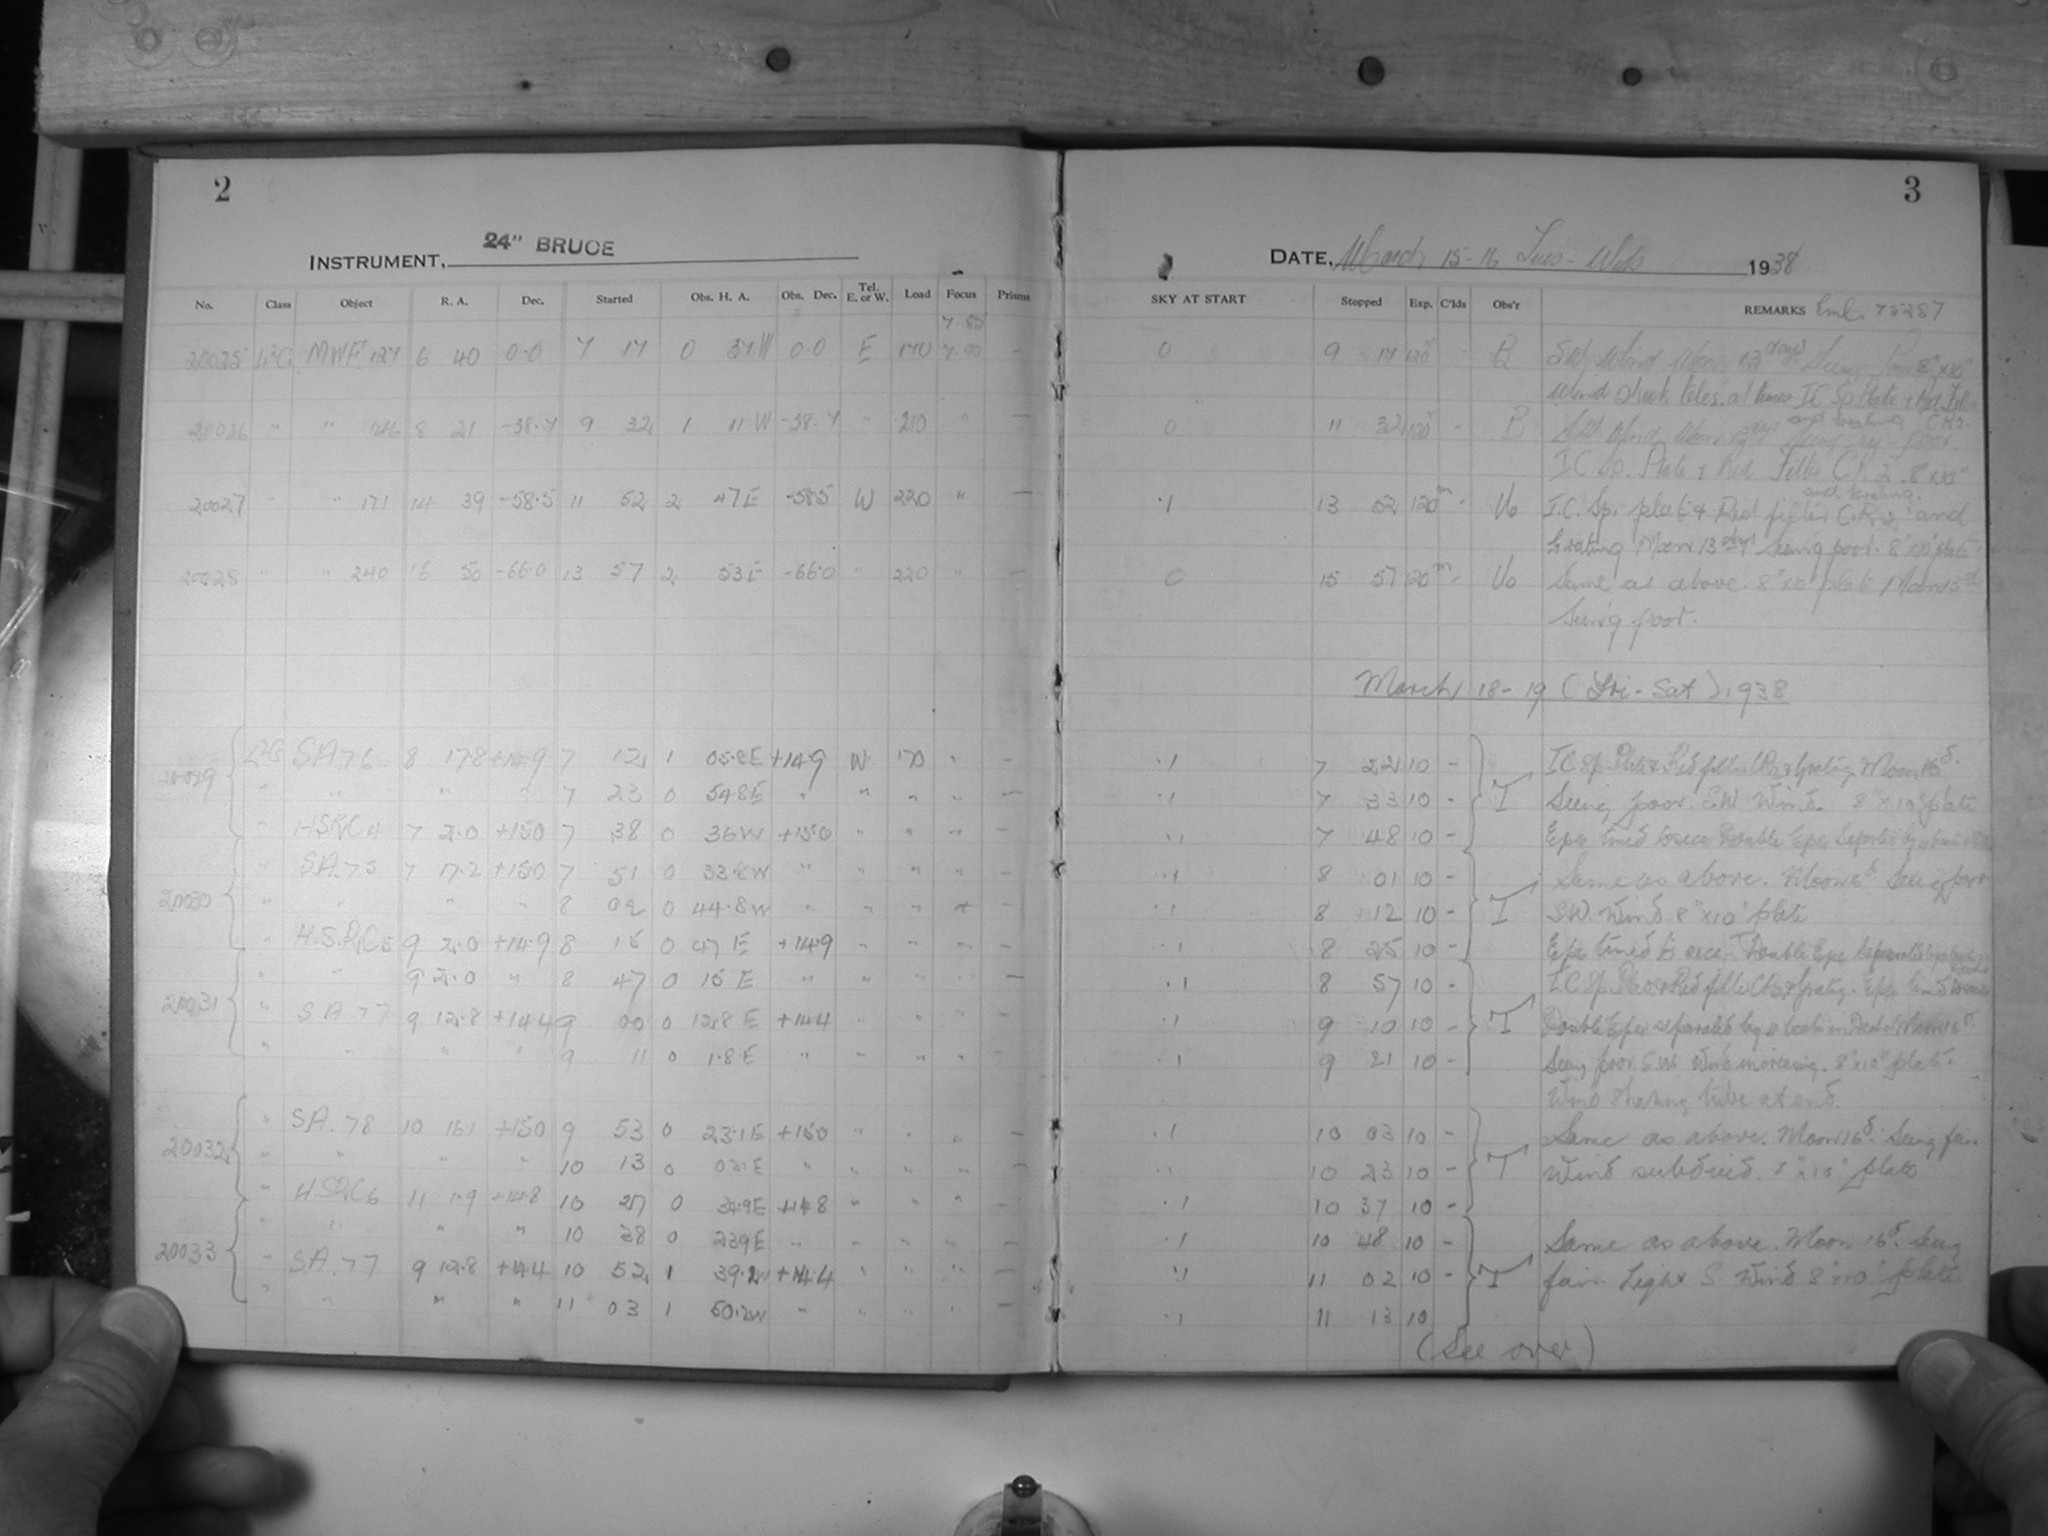 2
INSTRUMENT, 24" BRUCE
No. Class Object R. A. Dec. Started Obs. H. A. Obs. Dec. Tel. E. or W. Load Focus Prisms
7.85
20025 MWF. 127 6 40 0.0 7 17 0 37 W 0.0 E 170 7.90 -
20026 " " 126 8 21 -38.7 9 32 1 11 W -38.7 " 210 " -
20027 " " 171 14 39 -58.5 11 52 2 47 E -58.5 W 220 " -
20028 " " 240 16 50 -66.0 13 57 2 53 E -66.0 " 220 "
20029 SA 76 8 17.8 +14.9 7 12 1 05.8 E +14.9 W 170 " -
" " " " 7 23 0 54.8 E " " " " -
" HSRC 4 7 2.0 +15.0 7 38 0 36 W +15.0 " " " -
20030 " S.A. 75 7 17.2 +15.0 7 51 0 33.8 W " " " " -
" " " " 8 02 0 44.8 W " " " -
" H.S.R.C 5 9 2.0 +14.9 8 15 0 47 E +14.9 " " " -
20031 " " 9 2.0 " 8 47 0 15 E " " " " -
" S A 77 9 12.8 +14.4 9 00 0 12.8 E +14.4 " " " -
" " " " 9 11 0 1.8 E " " " " -
20032 " SA. 78 10 16.1 +15.0 9 53 0 23.1 E +15.0 " " " -
" " " " 10 13 0 E " " " " -
" H.S.R.C 6 11 1.9 +14.8 10 27 0 34.9 E +14.8 " " " -
20033 " " " " 10 38 0 23.9 E " " " " -
" S.A. 77 9 12.8 +14.4 10 52 1 39.2 W +14.4 " " " -
" " " " 11 03 1 50.2 W " " " " -
3
DATE, March 15-16 Tues - Wed 1938
SKY AT START Stopped Exp. C'lds Obs'r REMARKS
0 9 17 120m - B S.W. Wind Moon 13 days Seeing Poor 8"x10"
Wind shook teles. at times I C Sp Plate & Red Filter
and Grating C R 2.
0 11 32 120m - B S.W. Wind Moon Seeing poor.
I C Sp. Plate & Red Filter C R 2. 8"x10"
and Grating.
.1 13 52 120m - I.C. Sp. plate & Red filter C.R 2, and
Grating Moon 13 days Seeing poor. 8"x10" plate.
0 15 57 120m - Same as above. 8"x10" plate Moon 13d
Seeing poor.
March 18-19 (Fri-Sat) 1938
.1 7 22 10 - I C Sp. Plate & Red filter & Grating. Moon 16d.
.1 7 33 10 - T Seeing poor. S.W. Wind. 8"x10" plate
.1 7 48 10 - Exps timed to secs Double Exps Separated by
.1 8 01 10 - Same as above. Moon 16d Seeing poor
.1 8 12 10 - T S.W. Wind 8"x10" plate
.1 8 25 10 - Exps timed to secs. Double Exps separated
.1 8 57 10 - I. C Sp. Plate & Red filter & Grating. Exps timed to secs
.1 9 10 10 - T Double Exps separated by Moon 16d.
.1 9 21 10 - Seeing poor. S.W. Wind increasing. 8"x10" plate.
Wind shaking tube at end.
.1 10 03 10 - Same as above. Moon 16d. Seeing fair
10 23 10 - T Wind subdued. 8"x10" plate
.1 10 37 10 -
.1 10 48 10 - Same as above. Moon 16d. Seeing
.1 11 02 10 - T fair. Light S Wind 8"x10" plate
.1 11 13 10
(See over)